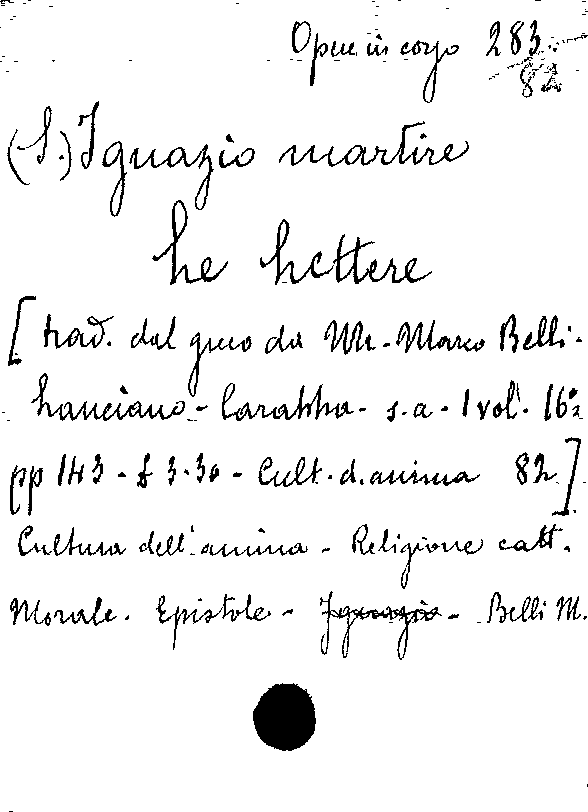 Opere in corso 283.
82
(S.) Ignazio martire
Le Lettere
[trad. dal greco da Mr. Marco Belli-
Lanciano - Carabba - s.a - 1 vol. 16°
pp 143 - £ 3.30 - Cult. d. anima 82]
Cultura dell'anima - Religione catt.
Morale. Epistole - Ignazio - Belli M.